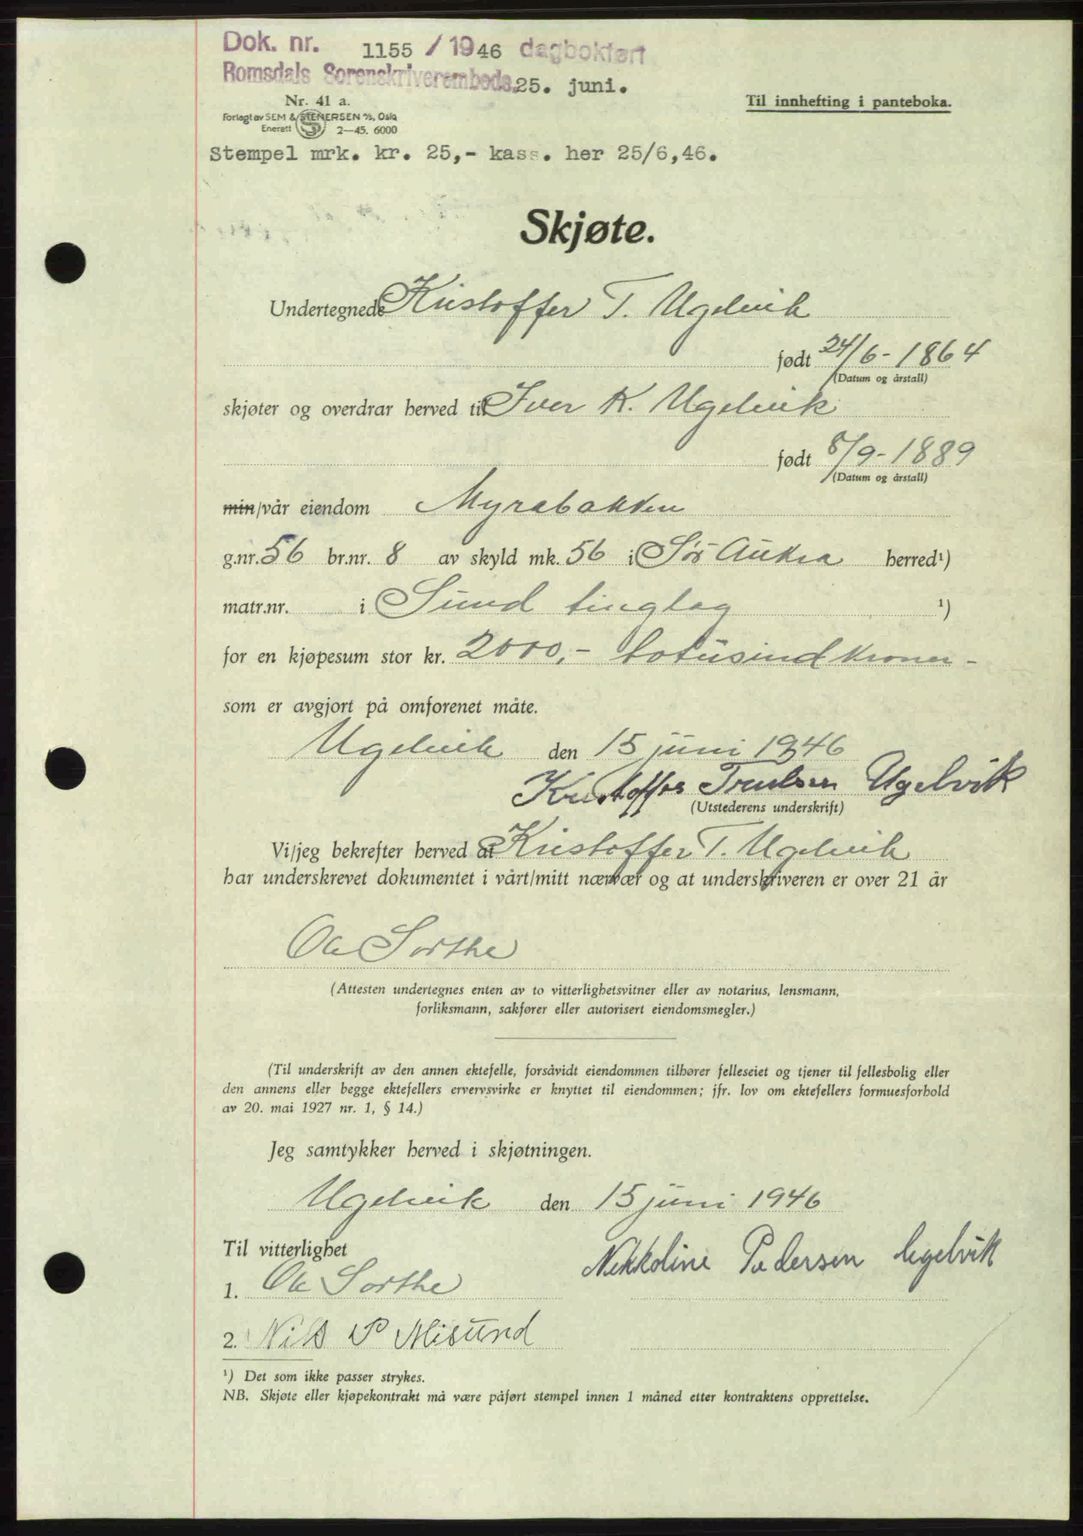 Dok. nr. 1155 / 1946 dagbokført
Romsdals Sorenskriverembede. 25. juni.
Nr. 41 a.
Til innhefting i panteboka.
Forlagt av SEM & STENERSEN A/S, Oslo
Enerett 2—45. 6000
Stempel mrk. kr. 25,- kass. her 25/6,46.
Skjøte.
Undertegnede Kristoffer T. Ugelvik
født 24/6-1864
(Datum og årstall)
skjøter og overdrar herved til Iver K. Ugelvik
født 8/9-1889
(Datum og årstall)
min/vår eiendom Myrabakken
g.nr. 56 br.nr. 8 av skyld mk. 56 i Sør Aukra herred¹)
matr.nr. i Sund tinglag ¹)
for en kjøpesum stor kr. 2000,- totusind kroner -
som er avgjort på omforenet måte.
Ugelvik den 15 juni 1946
Kristoffer Trulsen Ugelvik
(Utstederens underskrift)
Vi/jeg bekrefter herved at Kristoffer T. Ugelvik
har underskrevet dokumentet i vårt/mitt nærvær og at underskriveren er over 21 år
Ole Sorthe
(Attesten undertegnes enten av to vitterlighetsvitner eller av notarius, lensmann,
forliksmann, sakfører eller autorisert eiendomsmegler.)
(Til underskrift av den annen ektefelle, forsåvidt eiendommen tilhører felleseiet og tjener til fellesbolig eller
den annens eller begge ektefellers ervervsvirke er knyttet til eiendommen; jfr. lov om ektefellers formuesforhold
av 20. mai 1927 nr. 1, § 14.)
Jeg samtykker herved i skjøtningen.
Ugelvik den 15 juni 1946
Til vitterlighet
Nikkoline Pedersen Ugelvik
1. Ole Sorthe
2. Nils P Misund
¹) Det som ikke passer strykes.
NB. Skjøte eller kjøpekontrakt må være påført stempel innen 1 måned etter kontraktens opprettelse.